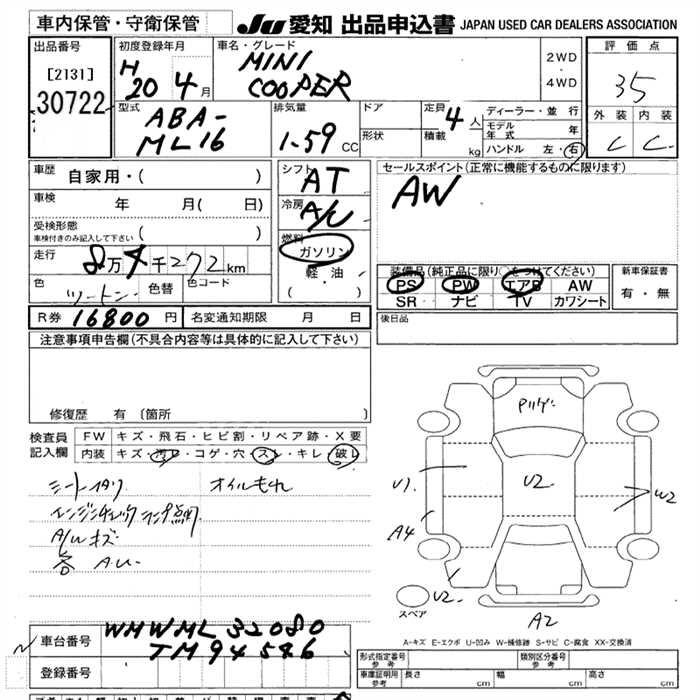 車内保管・守衛保管
JU 愛知 出品申込書 JAPAN USED CAR DEALERS ASSOCIATION
出品番号
[2131]
30722
初度登録年月
H 20 4月
車名・グレード
MINI
COOPER
2WD
4WD
評価点
35
外装 内装
C C
型式
ABA-
ML16
排気量
1.59 CC
ドア
形状
定員 4人
積載 kg
ディーラー・並行
モデル年式 年
ハンドル 左・右
車歴
自家用・( )
車検
年 月( 日)
受検形態
車検付きのみ記入して下さい
走行
8万4千272km
色
ツートン
色替 色コード
シフト
AT
冷房
A/C
燃料
ガソリン
軽油
( ・ )
セールスポイント(正常に機能するものに限ります)
AW
装備品(純正品に限り○をつけてください)
PS PW エアB AW
SR ナビ TV カワシート
新車保証書
有・無
R券 16800円
名変通知期限 月 日
後日品
注意事項申告欄(不具合内容等は具体的に記入して下さい)
修復歴 有 〔箇所 〕
検査員記入欄
FW キズ・飛石・ヒビ割・リペア跡・X要
内装 キズ・汚レ・コゲ・穴・スレ・キレ・破レ
オイルもれ
エンジンチェックランプ点灯
Pリゲ
U2
U1
W2
A4
U2
スペア
A2
A-キズ E-エクボ U-凹み W-補修跡 S-サビ C-腐食 XX-交換済
車台番号
WMWML32080
TM94546
登録番号
形式指定番号 参考
類別区分番号 参考
車庫証明用 参考
長さ cm
幅 cm
高さ cm